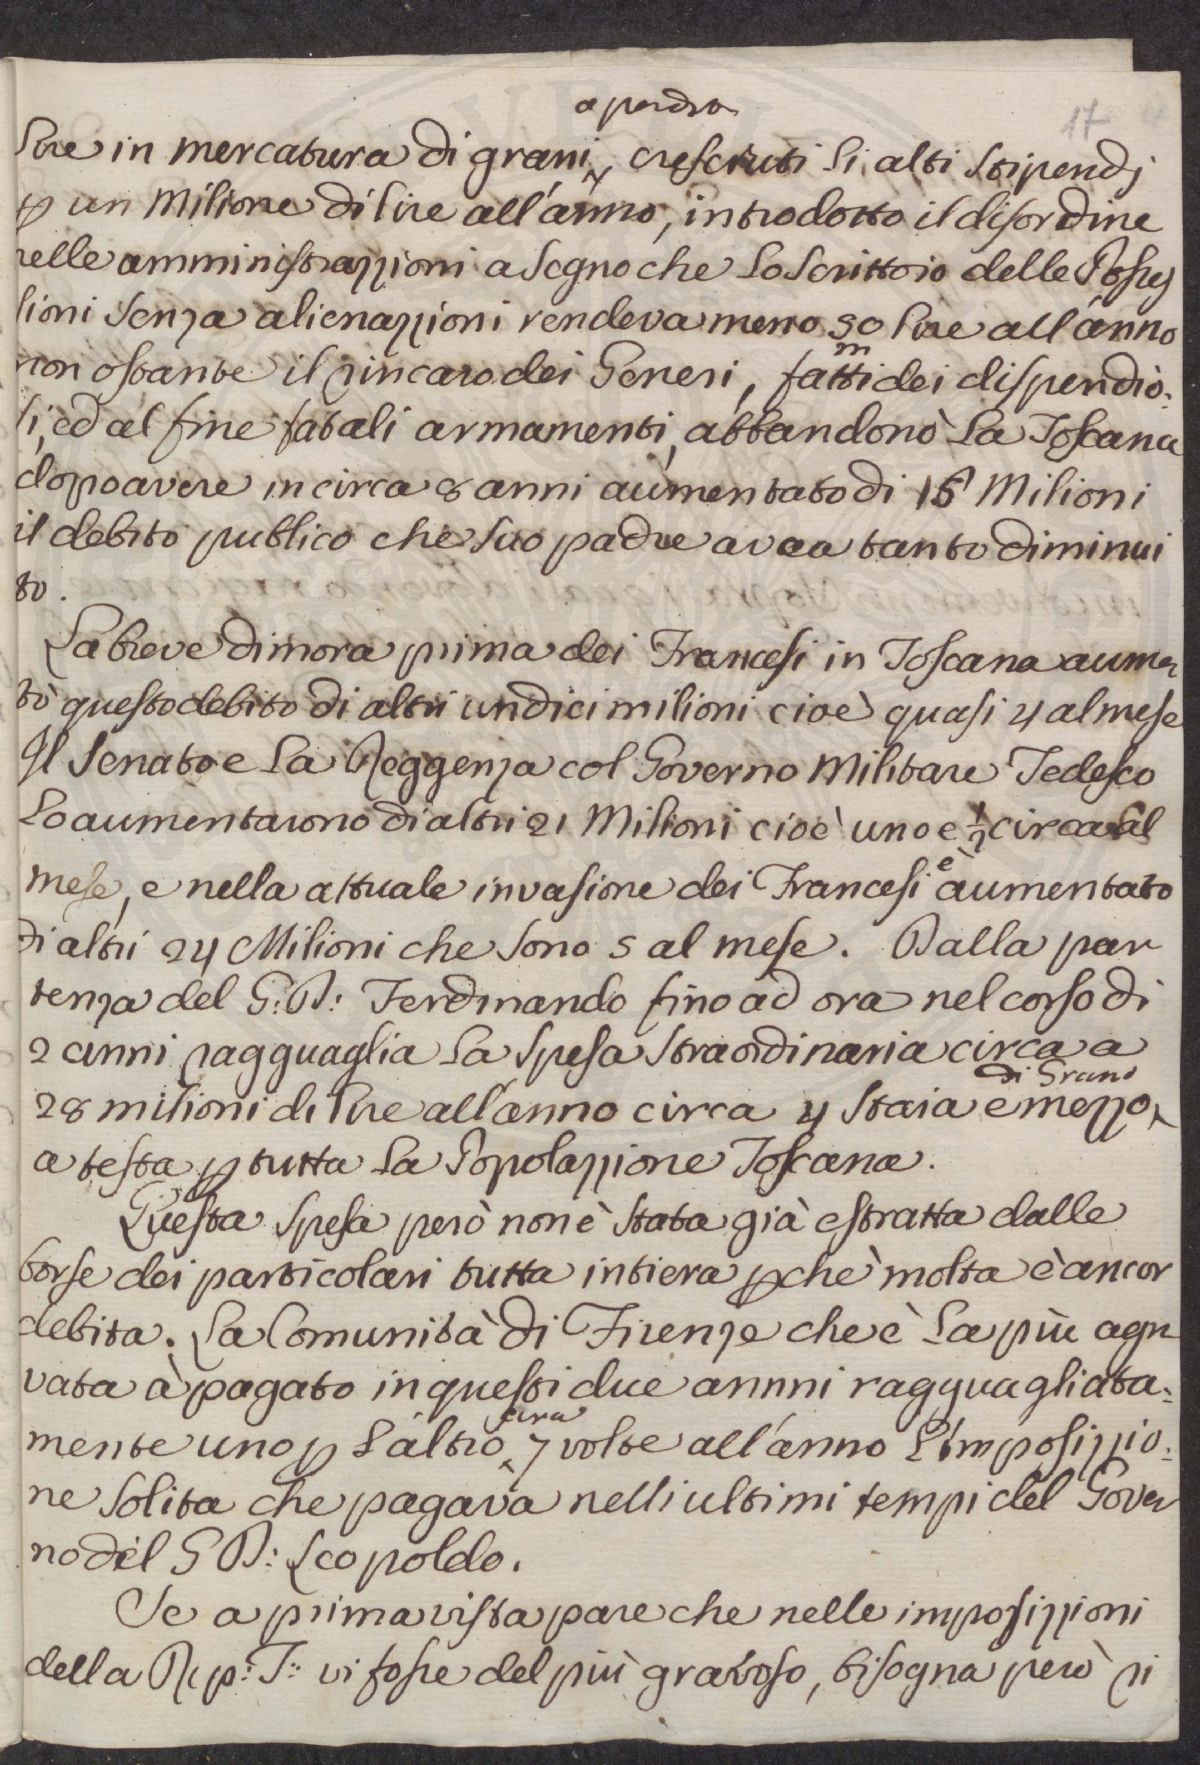 a perdita
17
Lire in mercatura di grani, cresciuti li alti stipendj
p un milione di lire all'anno, introdotto il disordine
nelle amministrazzioni a segno che lo scrittoio delle Posses
sioni senza alienazzioni rendeva meno 50 lire all'anno
non ostante il rincaro dei Generi, fatti dei dispendio:
si, ed al fine fatali armamenti, abbandonò la Toscana
dopo avere in circa 8 anni aumentato di 15 Milioni
il debito publico che suo padre avea tanto diminui
to.
La breve dimora prima dei Francesi in Toscana aumen
tò questo debito di altri undici milioni cioè quasi 4 al mese
Il Senato e la Reggenza col Governo Militare Tedesco
lo aumentarono di altri 21 Milioni cioè uno e ½ circa al
mese, e nella attuale invasione dei Francesi è aumentato
di altri 24 Milioni che sono 5 al mese. Dalla par
tenza del G: D: Ferdinando fino ad ora nel corso di
2 anni ragguaglia la spesa straordinaria circa a
di Grano
28 milioni di lire all'anno circa 4 staia e mezzo
a testa p tutta la Popolazzione Toscana.
Questa spesa però non è stata già estratta dalle
borse dei particolari tutta intiera pchè molta è ancor
debita. La Comunità di Firenze che è la più agra
vata à pagato in questi due annni ragguagliata:
circa
mente uno p l'altro 7 volte all'anno l'imposizzio:
ne solita che pagava nelli ultimi tempi del Gover
no del G D: Leopoldo.
Se a prima vista pare che nelle imposizzioni
della Rep: T: vi fosse del più gravoso, bisogna però ri